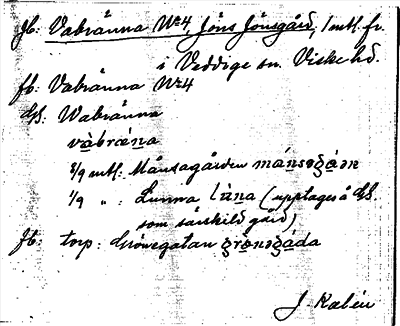 Jb: Vabränna No 4, Jöns Jönsgård, 1 mtl. fr.
i Veddige sn. Viske hd.
fb: Vabränna No 4
GS: Wabränna
vàbræna
8/9 mtl: Månsagården mánsagà̱ɔn
1/9 „ : Lunna lùna (upptages å GS.
som särskild gård)
Jb: torp: Grönegatan grø̀nəgáda
J. Kalén